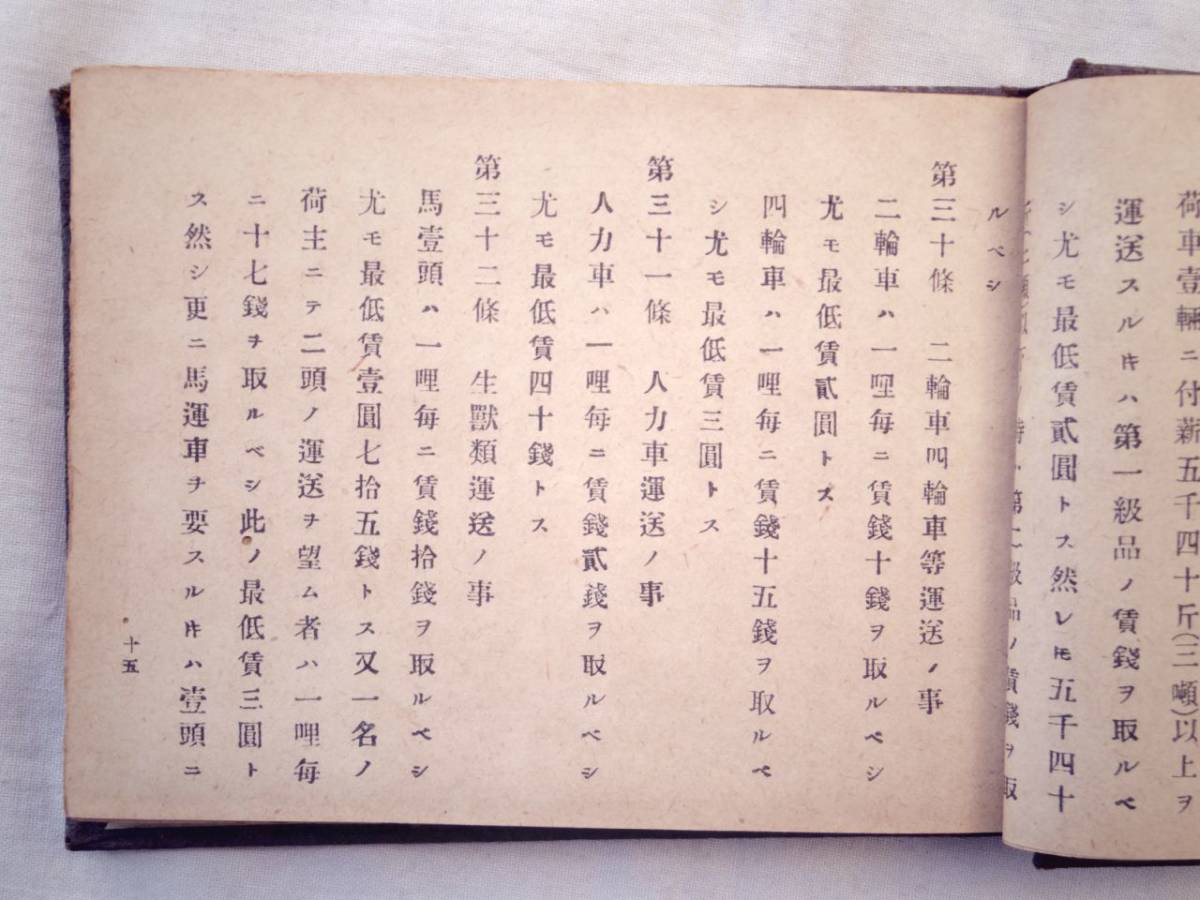 荷車壹輛ニ付薪五千四十斤(三噸)以上ヲ
運送スルキハ第一級品ノ賃錢ヲ取ルベ
シ尤モ最低賃貳圓トス然レ𪜈五千四十
第一級品ノ賃錢ヲ取
ルベシ
第三十條 二輪車四輪車等運送ノ事
二輪車ハ一哩每ニ賃錢十錢ヲ取ルベシ
尤モ最低賃貳圓トス
四輪車ハ一哩每ニ賃錢十五錢ヲ取ルベ
シ尤モ最低賃三圓トス
第三十一條 人力車運送ノ事
人力車ハ一哩每ニ賃錢貳錢ヲ取ルベシ
尤モ最低賃四十錢トス
第三十二條 生獸類運送ノ事
馬壹頭ハ一哩每ニ賃錢拾錢ヲ取ルベシ
尤モ最低賃壹圓七拾五錢トス又一名ノ
荷主ニテ二頭ノ運送ヲ望ム者ハ一哩每
ニ十七錢ヲ取ルベシ此ノ最低賃三圓ト
ス然シ更ニ馬運車ヲ要スルキハ壹頭ニ
十五